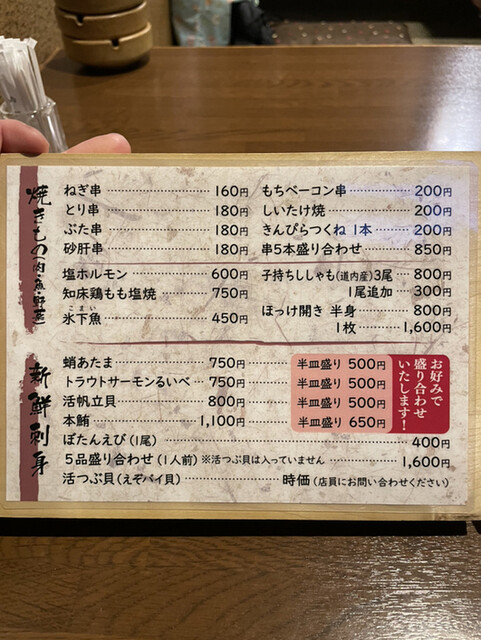 焼きもの(肉・魚・野菜)
ねぎ串 160円
とり串 180円
ぶた串 180円
砂肝串 180円
もちベーコン串 200円
しいたけ焼 200円
きんぴらつくね 1本 200円
串5本盛り合わせ 850円
塩ホルモン 600円
知床鶏もも塩焼 750円
氷下魚 450円
こまい
子持ちししゃも(道内産)3尾 800円
1尾追加 300円
ほっけ開き 半身 800円
1枚 1,600円
新鮮刺身
蛸あたま 750円 半皿盛り 500円
トラウトサーモンるいべ 750円 半皿盛り 500円
活帆立貝 800円 半皿盛り 500円
本鮪 1,100円 半皿盛り 650円
お好みで
盛り合わせ
いたします!
ぼたんえび(1尾) 400円
5品盛り合わせ(1人前)※活つぶ貝は入っていません 1,600円
活つぶ貝(えぞバイ貝) 時価(店員にお問い合わせください)